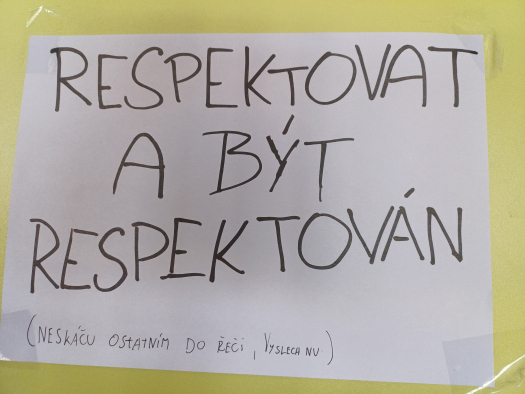 RESPEKTOVAT
A BÝT
RESPEKTOVÁN
(NESKÁČU OSTATNÍM DO ŘEČI, VYSLECANU)